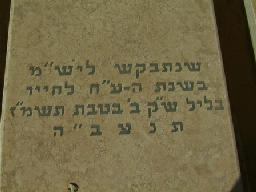 שנתבקש ליש״מ
בשנת ה-ע״ח לחייו
בליל ש״ק ב׳ בטבת תשמ״ז
ת נ צ ב ״ ה